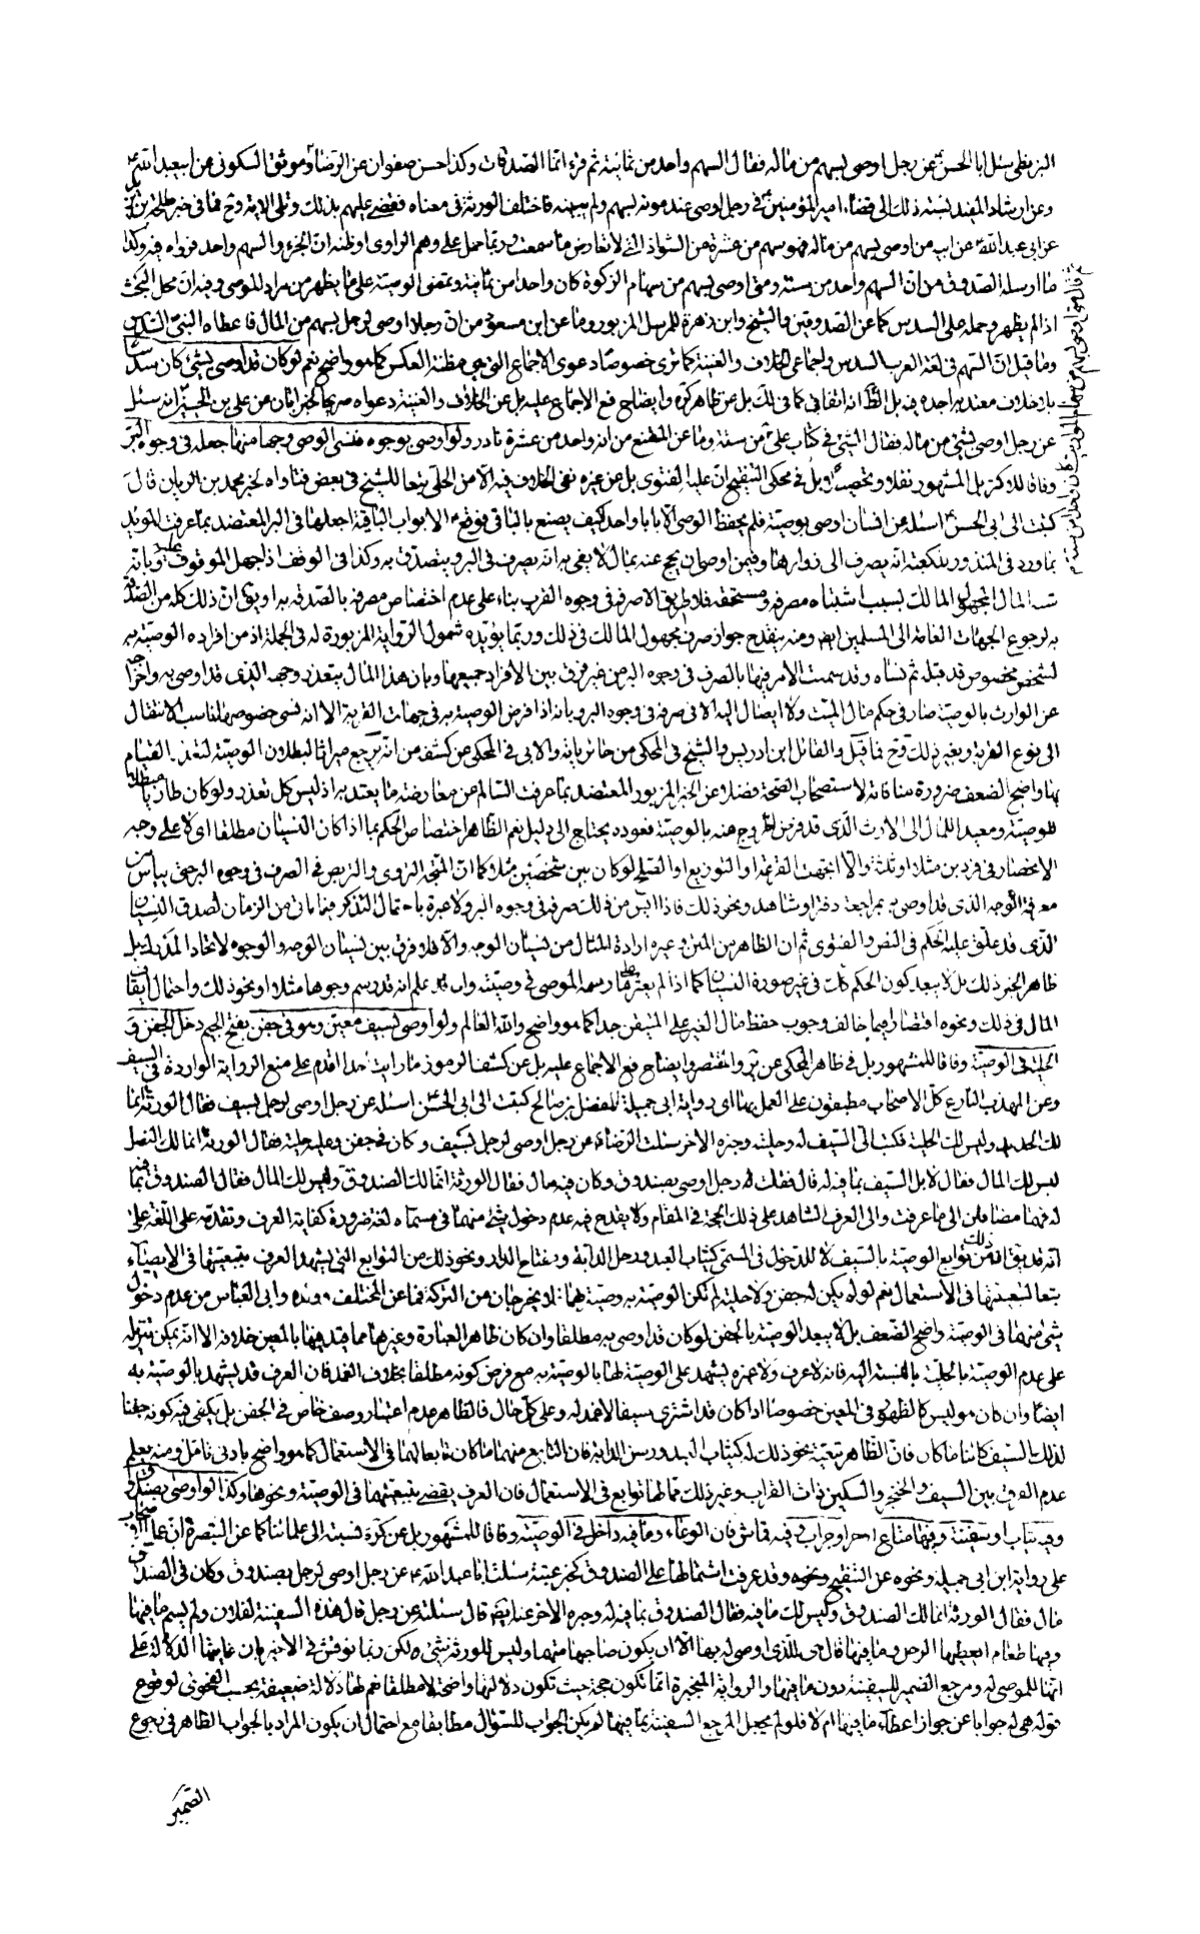 البزنطي سئل ابا الحسن عن رجل اوصى بسهم من ماله فقال السهم واحد من ثمانية ثم قرء انما الصدقات وكذا حسن صفوان عن الرضا وموثق السكوني عن ابيعبد الله
وعن ارشاد المفيد نسبة ذلك الى قضاء امير المؤمنين في رجل اوصى عند موته بسهم ولم يبينه فاختلف الورثة في معناه فقضى عليهم بذلك وتلى الاية وح فما في خبر طلحة بن زيد
عن ابي عبد الله عن ابيه من اوصى بسهم من ماله فهو سهم من عشرة من الشواذ التي لا تعارض ما سمعت وربما حمل على وهم الراوي او ظنه ان الجزء والسهم واحد فرواه فيه وكذا
ما ارسله الصدوق من ان السهم واحد من ستة ومتى اوصى بسهم من سهام الزكوة كان واحدا من ثمانية وتمضى الوصية على ما يظهر من مراد الموصى وفيه ان محل البحث
اذا لم يظهر وحمله على السدس كما عن الصدوقين والشيخ وابن زهرة للمرسل المزبور وما عن ابن مسعود من ان رجلا اوصى لرجل بسهم من المال فاعطاه النبي السدس
وما قيل ان السهم في لغة العرب السدس واجماعي الخلاف والغنية كما ترى خصوصا دعوى الاجماع التي هي مظنة العكس كما هو واضح نعم لو كان قد اوصى بشئ كان سدسا
بلا خلاف معتد به اجده فيه بل الظ انه اتفاقي كما في لك بل عن ظاهر كره وايضاح فع الاجماع عليه بل عن الخلاف والغنية دعواه صريحا لخبر ابان عن علي بن الحسين انه سئل
عن رجل اوصى بشئ من ماله فقال الشئ في كتاب علي من ستة وما عن المقنع من انه واحد من عشرة نادر ولو اوصى بوجوه فنسى الوصى وجها منها جعله في وجوه البر
وفاقا للاكثر بل المشهور نقلا وتحصيلا بل في محكى التنقيح ان عليه الفتوى بل عن غيره نفى الخلاف فيه الا من الحلي تبعا للشيخ في بعض فتاواه لخبر محمد بن الريان قال
كتبت الى ابي الحسن اسئله عن انسان اوصى بوصية فلم يحفظ الوصى الا بابا واحدا كيف يصنع بالباقي فوقع الابواب الباقية اجعلها في البر المعتضد بما عرفت المؤيد
بما ورد في المنذور للكعبة انه يصرف الى زوارها وفيمن اوصى ان يحج عنه بمال لا يفي به انه يصرف في البر ويتصدق به وكذا في الوقف اذا جهل الموقوف عليه وبانه
شبه المال المجهول المالك بسبب اشتباه مصرفه ومستحقه فلا طريق الا صرفه في وجوه القرب بناء على عدم اختصاص مصرفه بالصدقة به او يق ان ذلك كله من الصدقة
به لرجوع الجهات العامة الى المسلمين ايض ومنه ينقدح جواز صرف مجهول المالك في ذلك وربما يؤيده شمول الرواية المزبورة له في الجملة اذ من افراده الوصية به
لشخص مخصوص قد قبله ثم نساه وقد سمعت الامر فيها بالصرف في وجوه البر من غير فرق بين الافراد جميعها وبان هذا المال يتعذر وجهه الذي قد اوصى به واخراجه
عن الوارث بالوصية صار في حكم مال الميت ولا ايصال اليه الا في صرفه في وجوه البر وبانه اذا فرض الوصية به في جهات القربة الا انه نسى خصوصها ناسب الانتقال
الى نوع القربة وبغير ذلك وح فما قيل والقائل ابن ادريس والشيخ في المحكى من حائرياته والابي في المحكى عن كشفه من انه يرجع ميراثا لبطلان الوصية لتعذر القيام
بها واضح الضعف ضرورة منافاته لاستصحاب الصحة فضلا عن الخبر المزبور المعتضد بما عرفت السالم من معارضة ما يعتد به اذ ليس كل تعذر ولو كان طاريا مبطلا
للوصية ومعيدا للمال الى الارث الذي قد فرض خروجه منه بالوصية فعوده يحتاج الى دليل نعم الظاهر اختصاص الحكم بما اذا كان النسيان مطلقا اي لا على وجه
الانحصار في فردين مثلا او ثلثة والا اتجهت القرعة او التوزيع او الصلح لو كان بين شخصين مثلا كما ان المتجه التروي والتربص في الصرف في وجوه البر حتى ييأس من
معرفة الوجه الذي قد اوصى به بمراجعة دفتر او شاهد ونحو ذلك فاذا ايس من ذلك صرفه في وجوه البر ولا عبرة باحتمال التذكر فيما ياتي من الزمان لصدق النسيان
الذي قد علق عليه الحكم في النص والفتوى ثم ان الظاهر من المتن وغيره ارادة المثال من نسيان الوجه والا فلا فرق بين نسيان الوجه والوجوه لاتحاد المدرك بل
ظاهر الخبر ذلك بل لا يبعد كون الحكم كك في غير صورة النسيان كما اذا لم يعثر على ما رسمه الموصى في وصيته وان علم انه قد رسم وجوها مثلا او نحو ذلك واحتمال ابقاء
المال في ذلك ونحوه اقتصارا فيما خالف وجوب حفظ مال الغير على المتيقن جدا كما هو واضح والله العالم ولو اوصى بسيف معين وهو في جفن بفتح الجيم دخل الجفن و
الحلية في الوصية وفاقا للمشهور بل في ظاهر المحكى عن ير والمقتصر وايضاح فع الاجماع عليه بل عن كشف الرموز ما رايت احدا اقدم على منع الرواية الواردة في السيف
وعن المهذب البارع كل الاصحاب مطبقون على العمل بها اي رواية ابي جميلة المفضل بن صالح كتبت الى ابي الحسن اسئله عن رجل اوصى لرجل بسيف فقال الورثة انما
لك الحديد وليس لك الحلية فكتب الى السيف له وحليته وخبره الاخر سئلت الرضا عن رجل اوصى لرجل بسيف وكان في جفن وعليه حلية فقال الورثة انما لك النصل
ليس لك المال فقال لا بل السيف بما فيه له قال فقلت له رجل اوصى بصندوق وكان فيه مال فقال الورثة انما لك الصندوق وليس لك المال فقال الصندوق بما فيه
له فهما مضافان الى ما عرفت والى العرف الشاهد على ذلك الحجة في المقام ولا يقدح فيه عدم دخول شئ منهما في مسماه لغة ضرورة كفاية العرف وتقدمه على اللغة على
انه قد يق ان ذلك من توابع الوصية بالسيف لا للدخول في المسمى كثياب العبد ورحل الدابة ومفتاح الدار ونحو ذلك من التوابع التي يشهد العرف بتبعيتها في الايصاء
تبعا لتبعيتها في الاستعمال نعم لو لم يكن له جفن ولا حلية لم تكن الوصية به وصية لهما فلا يخرجان من التركة فما عن المختلف وابي العباس من عدم دخول
شئ منهما في الوصية واضح الضعف بل لا يبعد الوصية بالجفن لو كان قد اوصى به مطلقا وان كان ظاهر العبارة وغيرها مما قيد فيها بالمعين خلافه الا انه يمكن تنزيله
على عدم الوصية بالحلية بالنسبة اليه فانه لا عرف ولا غيره يشهد على الوصية لها بالوصية به مع فرض كونه مطلقا بخلاف الغمد فان العرف قد يشهد بالوصية به
ايضا وان كان هو ليس كالظهور في المعين خصوصا اذا كان قد اشترى سيفا لا غمد له وعلى كل حال فالظاهر عدم اعتبار وصف خاص في الجفن بل يكفي فيه كونه جفنا
لذلك السيف كائنا ما كان فان الظاهر تبعية نحو ذلك له كثياب العبد ورسن الدابة فان التابع منهما ما كان تابعا لهما في الاستعمال كما هو واضح بادنى تامل ومنه يعلم
عدم الفرق بين السيف والخنجر والسكين ذات القراب وغير ذلك مما لها توابع في الاستعمال فان العرف يقضى بتبعيتها في الوصية ونحوها وكذا لو اوصى بصندوق
وفيه ثياب او سفينة وفيها متاع او جراب وفيه قماش فان الوعاء وما فيه داخل في الوصية وفاقا للمشهور بل عن كره نسبته الى علمائنا كما عن التبصرة ان عمل الاصحاب
على رواية ابن ابي جميلة ونحوه عن التنقيح ونحوه وقد عرفت اشتمالها على الصندوق كخبر عقبة سئلت ابا عبد الله عن رجل اوصى لرجل بصندوق وكان في الصندوق
مال فقال الورثة انما لك الصندوق وليس لك ما فيه فقال الصندوق بما فيه له وخبره الاخر عنه ايض قال سئلته عن رجل قال هذه السفينة لفلان ولم يسم ما فيها
وفيها طعام ايعطيها الرجل وما فيها قال هي للذي اوصى له بها الا ان يكون صاحبها متهما وليس للورثة شئ ولكن ربما نوقش في الاخير بان غايتها الدلالة على
انها للموصى له ومرجع الضمير للسفينة دون ما فيها والرواية المنجبرة انما تكون حجة حيث تكون دلالتها واضحة لا مطلقا نعم لها دلالة ضعيفة بحسب الفحوى لوقوع
قوله هي له جوابا عن جواز اعطاء ما فيها ام لا فلو لم يجعل المرجع السفينة بما فيها لم يكن الجواب للسؤال مطابقا مع احتمال ان يكون المراد بالجواب الظاهر في رجوع
الضمير